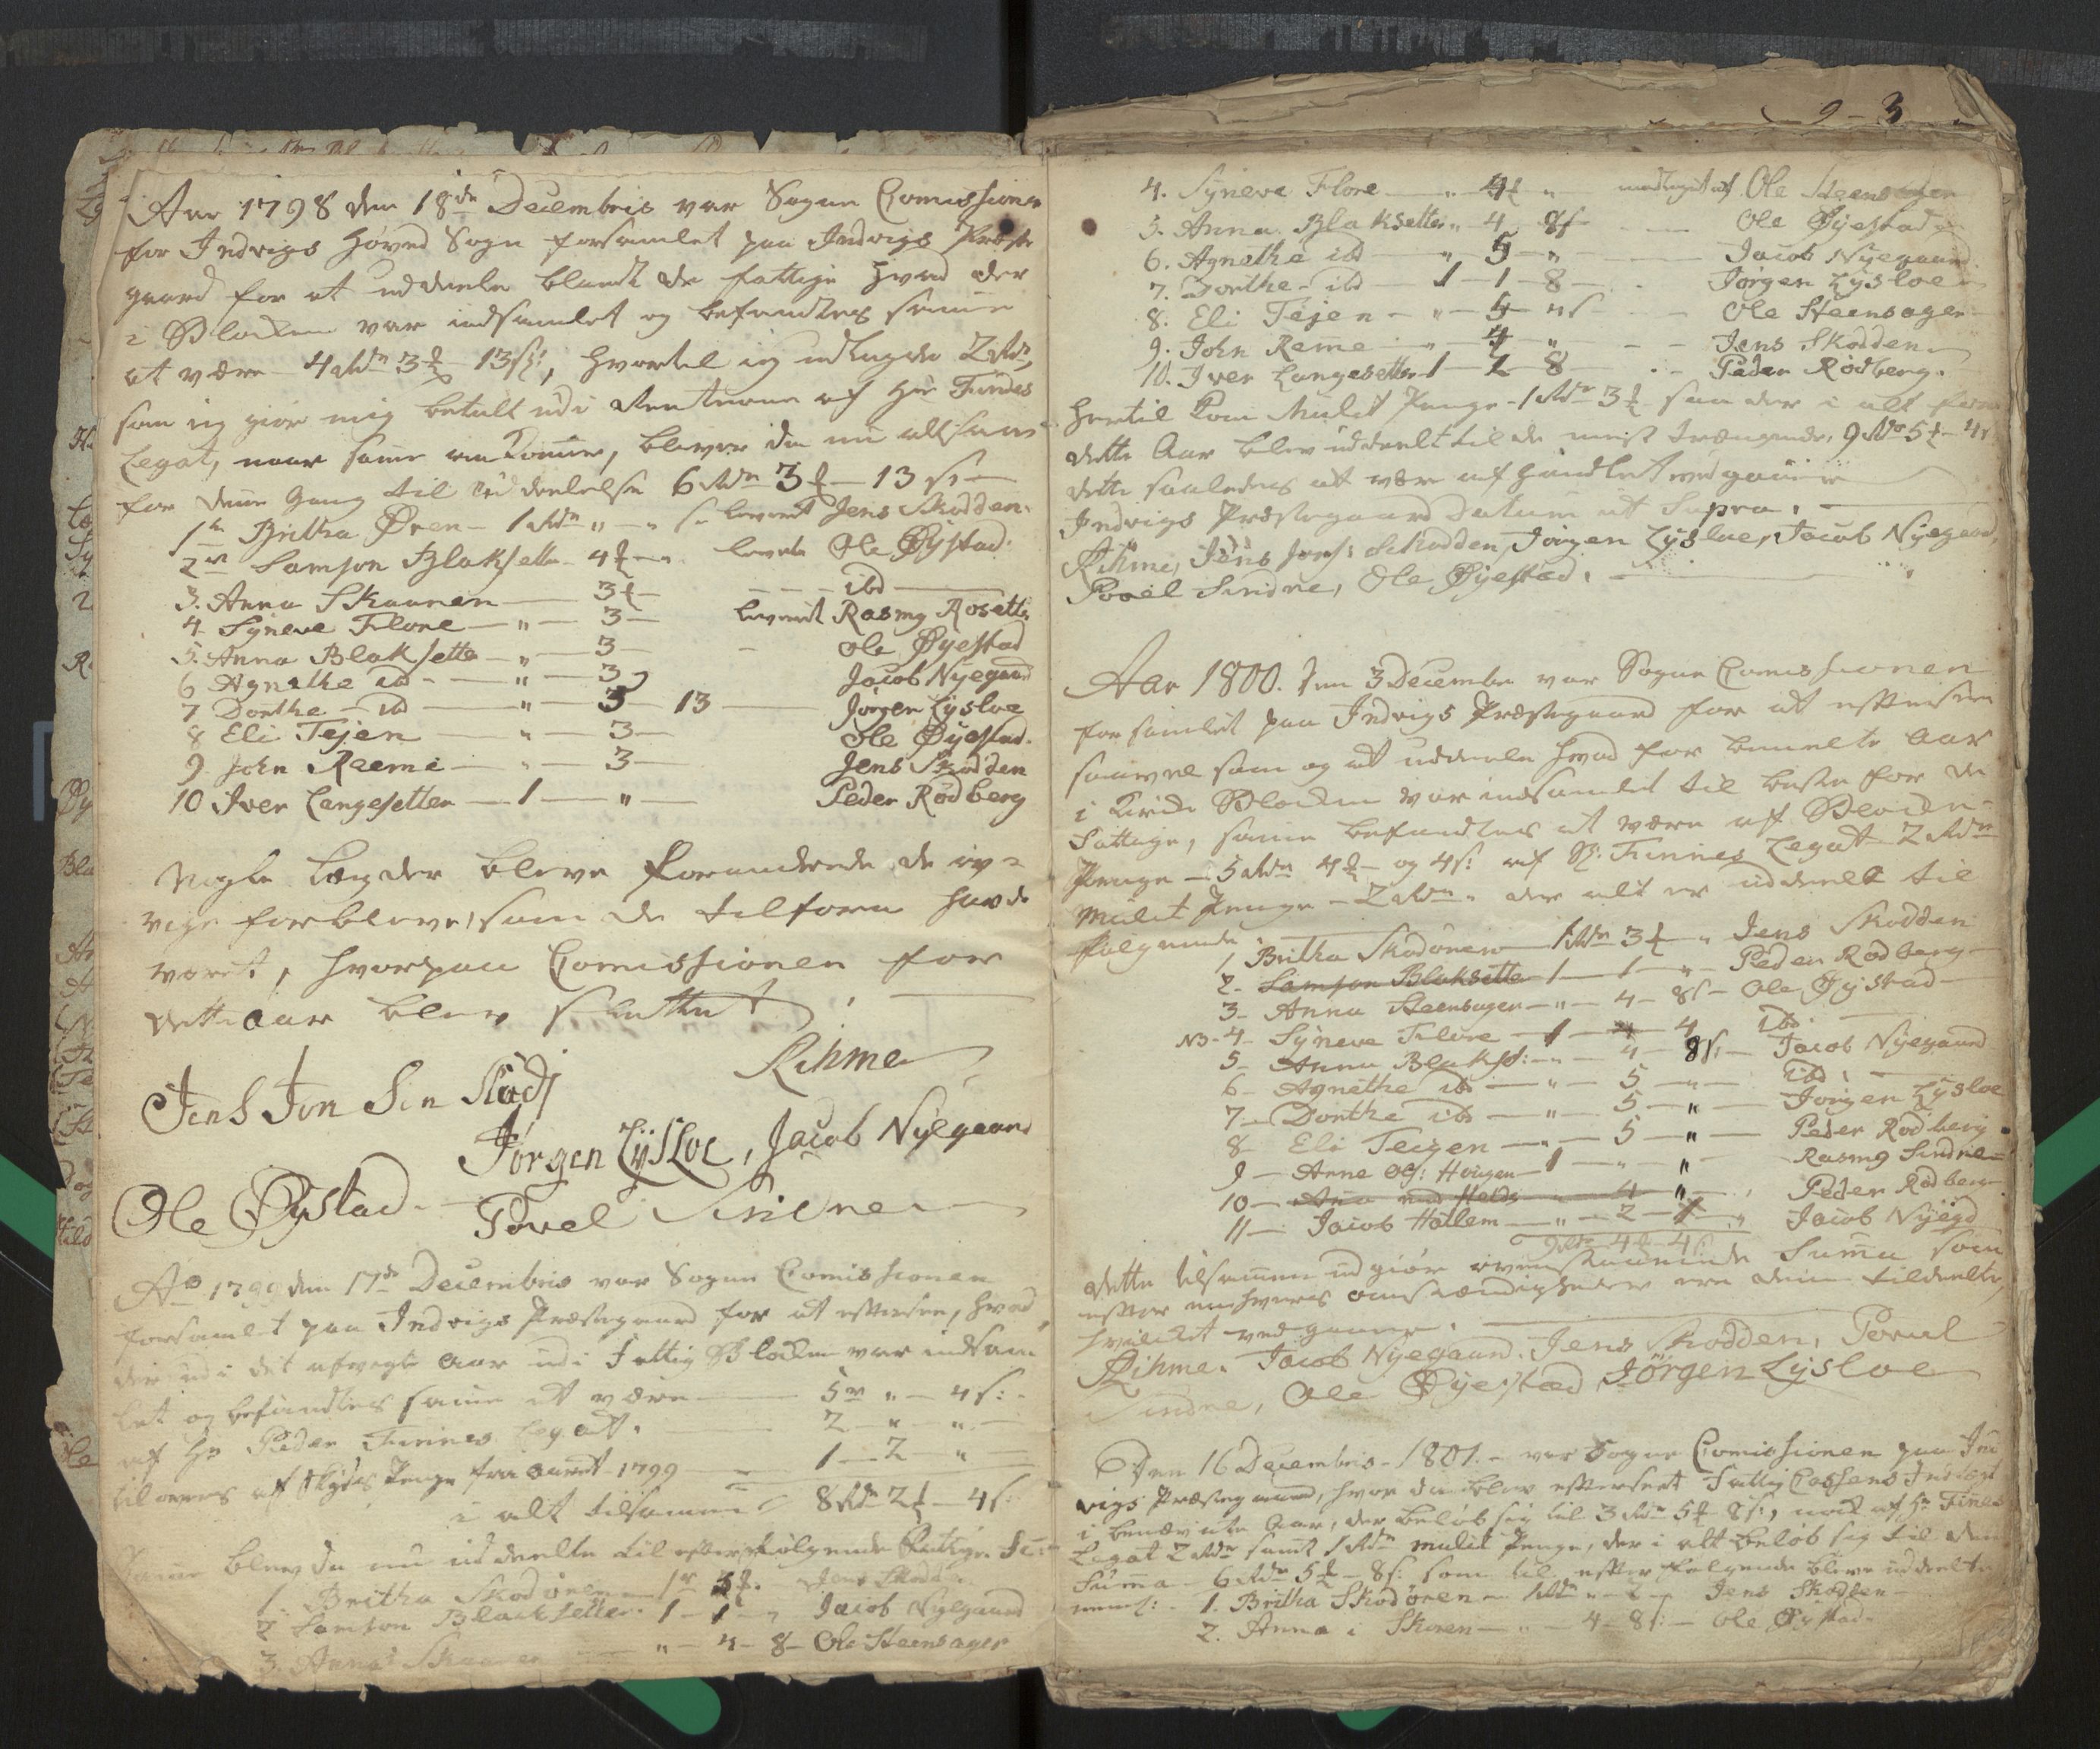 Aar 1798 den 18de Decembris var Sogne Comissionen
for Indvigs Hoved Sogn forsamlet paa Indvigs Præste
gaard for at uddeele blandt de fattige hvad der
i Blocken var indsamlet og befandtes samme
at være 4 Rdr 3 13 s:, hvortil ieg udlagde 2 Rdr,
som ieg giør mig betalt udi Renterne af Hr Findes
Legat, naar samme ankommer, bliver da nu alt saa
for denne Gang til uddeelelse 6 Rdr 3 - 13 s:
1te Britha Øren - 1 Rdr " - " s leveret Jens Skodden.
2n Samson Blaksetter - 4 - " leveret Ole Øystad.
3. Anna Skaanen - 3 - - - - ibd
4. Syneve Flore - " - 3 - leveret Rasmg Rosette
5. Anna Blaksette - " - 3 - - Ole Øyestad
6 Agnethe ibd - " - 3 Jacob Nyegaard
7 Dorthe - ibd - " - 3 - 13 - Jørgen Lysloe
8 Eli Tejen - " - 3 - Ole Øyestad.
9. John Reeme - " - 3 - Jens Skodden
10 Iver Langesetter - 1 - " - Peder Rødberg
Nogle Lægder bleve forandrede, de øv-
rige forbleve, som de tilforn havde
været, hvorpaa Comissionen for
dette aar blev sluttet.
Rihme
Jens Jon Sin Skodj
Jørgen Lysloe, Jacob Nyegaard
Ole Øystad. Povel Sindne
Ao 1799 den 17de Decembris var Sogne Comissionen
forsamlet paa Indvigs Præstegaard for at efftersee, hvad
der udi dit afvigte Aar udi Fattig Blocken var indsam
let og befandtes samme at være - 5 r " - 4 s:
af Hr Peder Finnes Legat. - 2 - " - "
til overs af Penge fra aaret 1799 - 1 - 2 - "
i alt tilsammen 8 Rdr 2 - 4 s:
Samme blev da nu uddeelte til efterfølgende Fattige
1. Britha Skodøren - 1 r 3. - Jens Skodden
2 Samson Blacksetter. 1 - 1 - " Jacob Nyegaard
3. Anna Skaanen - " - 4 - 8 - Ole Steensager
9 - 3
4. Syneve Flore - " 4 " modtaget af Ole Steensager
5. Anna Blaksetter " 4 8 s - Ole Øyestad
6. Agnethe ibd - " 5 - " - Jacob Nyegaard
7. Dorthe - ibd - 1 - 1 - 8 - Jørgen Lysloe
8. Eli Tejen - " - 5 - " s - Ole Steensager
9. John Reme - " - 4 - " - - Jens Skodden
10. Iver Langesetter - 1 - 2 - 8 - - Peder Rødberg.
Hertil kom Mulct Penge - 1 Rdr 3 - saa der i alt for
dette Aar blev uddeelt til de meest trængende, 9 Rdr 5 - 4 s
dette saaledes at være afhandlet vedgaaes
Indvigs Præstegaard Datum ut Supra.
Rihme, Jens Jons: Skodden, Jørgen Lysloe, Jacob Nyegaard,
Povel Sindne, Ole Øyestad.
Aar 1800. den 3 December var Sogne Comissionen
forsamlet paa Indvigs Præstegaard for at efftersee
saavel som og at uddeele hvad for benevte Aar
i Kirke Blocken var indsamlet til beste for de
Fattige, samme befandtes at være af Block-
Penge - 5 Rdr 4 - og 4 s: af Hr. Finnes Legat 2 Rdr
Mulct Penge - 2 Rdr " der alt er uddeelt til
følgende:
1, Britha Skodøren - 1 Rdr 3 - " Jens Skodden
2 - Samson Blaksetter - 1 - 1 - " - Peder Rødberg
3 - Anna Steensager - " - 4 - 8 s - Ole Øystad
NB - 4 - Syneve Flore - 1 - 4 ibd
5 - Anna Blakst: - " - 4 - 8 s: - Jacob Nyegaard
6 - Agnethe ibd - " - 5 - " - ibd.
7 - Dorthe ibd - " - 5 - " - Jørgen Lysloe
8 - Eli Teigen - " - 5 - " - Peder Rødberg
9 - Anne Hougen - 1 - " - " Rasmg Sindne
10 - Anna - 4 - " Peder Rødberg
11 - Jacob Hollem - " - 2 - " Jacob Nyegd
9 Rdr 4 - 4 s
dette tilsammen udgiør ovenstaaende Summa som
effter enhvers omstændigheder ere dem tildeelte,
hvilcket vedgaaes.
Rihme. Jacob Nyegaard. Jens Skodden, Povel
Sindne, Ole Øyestad Jørgen Lysloe
Den 16 Decembris - 1801. - var Sogne Comissionen paa Ind
vigs Præstegaard, hvor da blev effterseet Fattig Cassens Indtægt
i benævnte Aar, der beløb sig til 3 Rdr 5 8 s:, nock af Hr Finnes
Legat 2 Rdr samt 1 Rdr mulct Penge, der i alt beløb sig til den
Summa - 6 Rdr 5 - 8 s: som til effter følgende bleve uddeelte
neml: - 1. Britha Skodøren - 1 Rdr " - " Jens Skodden
2. Anna i Skoren - " - 4 - 8 s: - Ole Øystad.